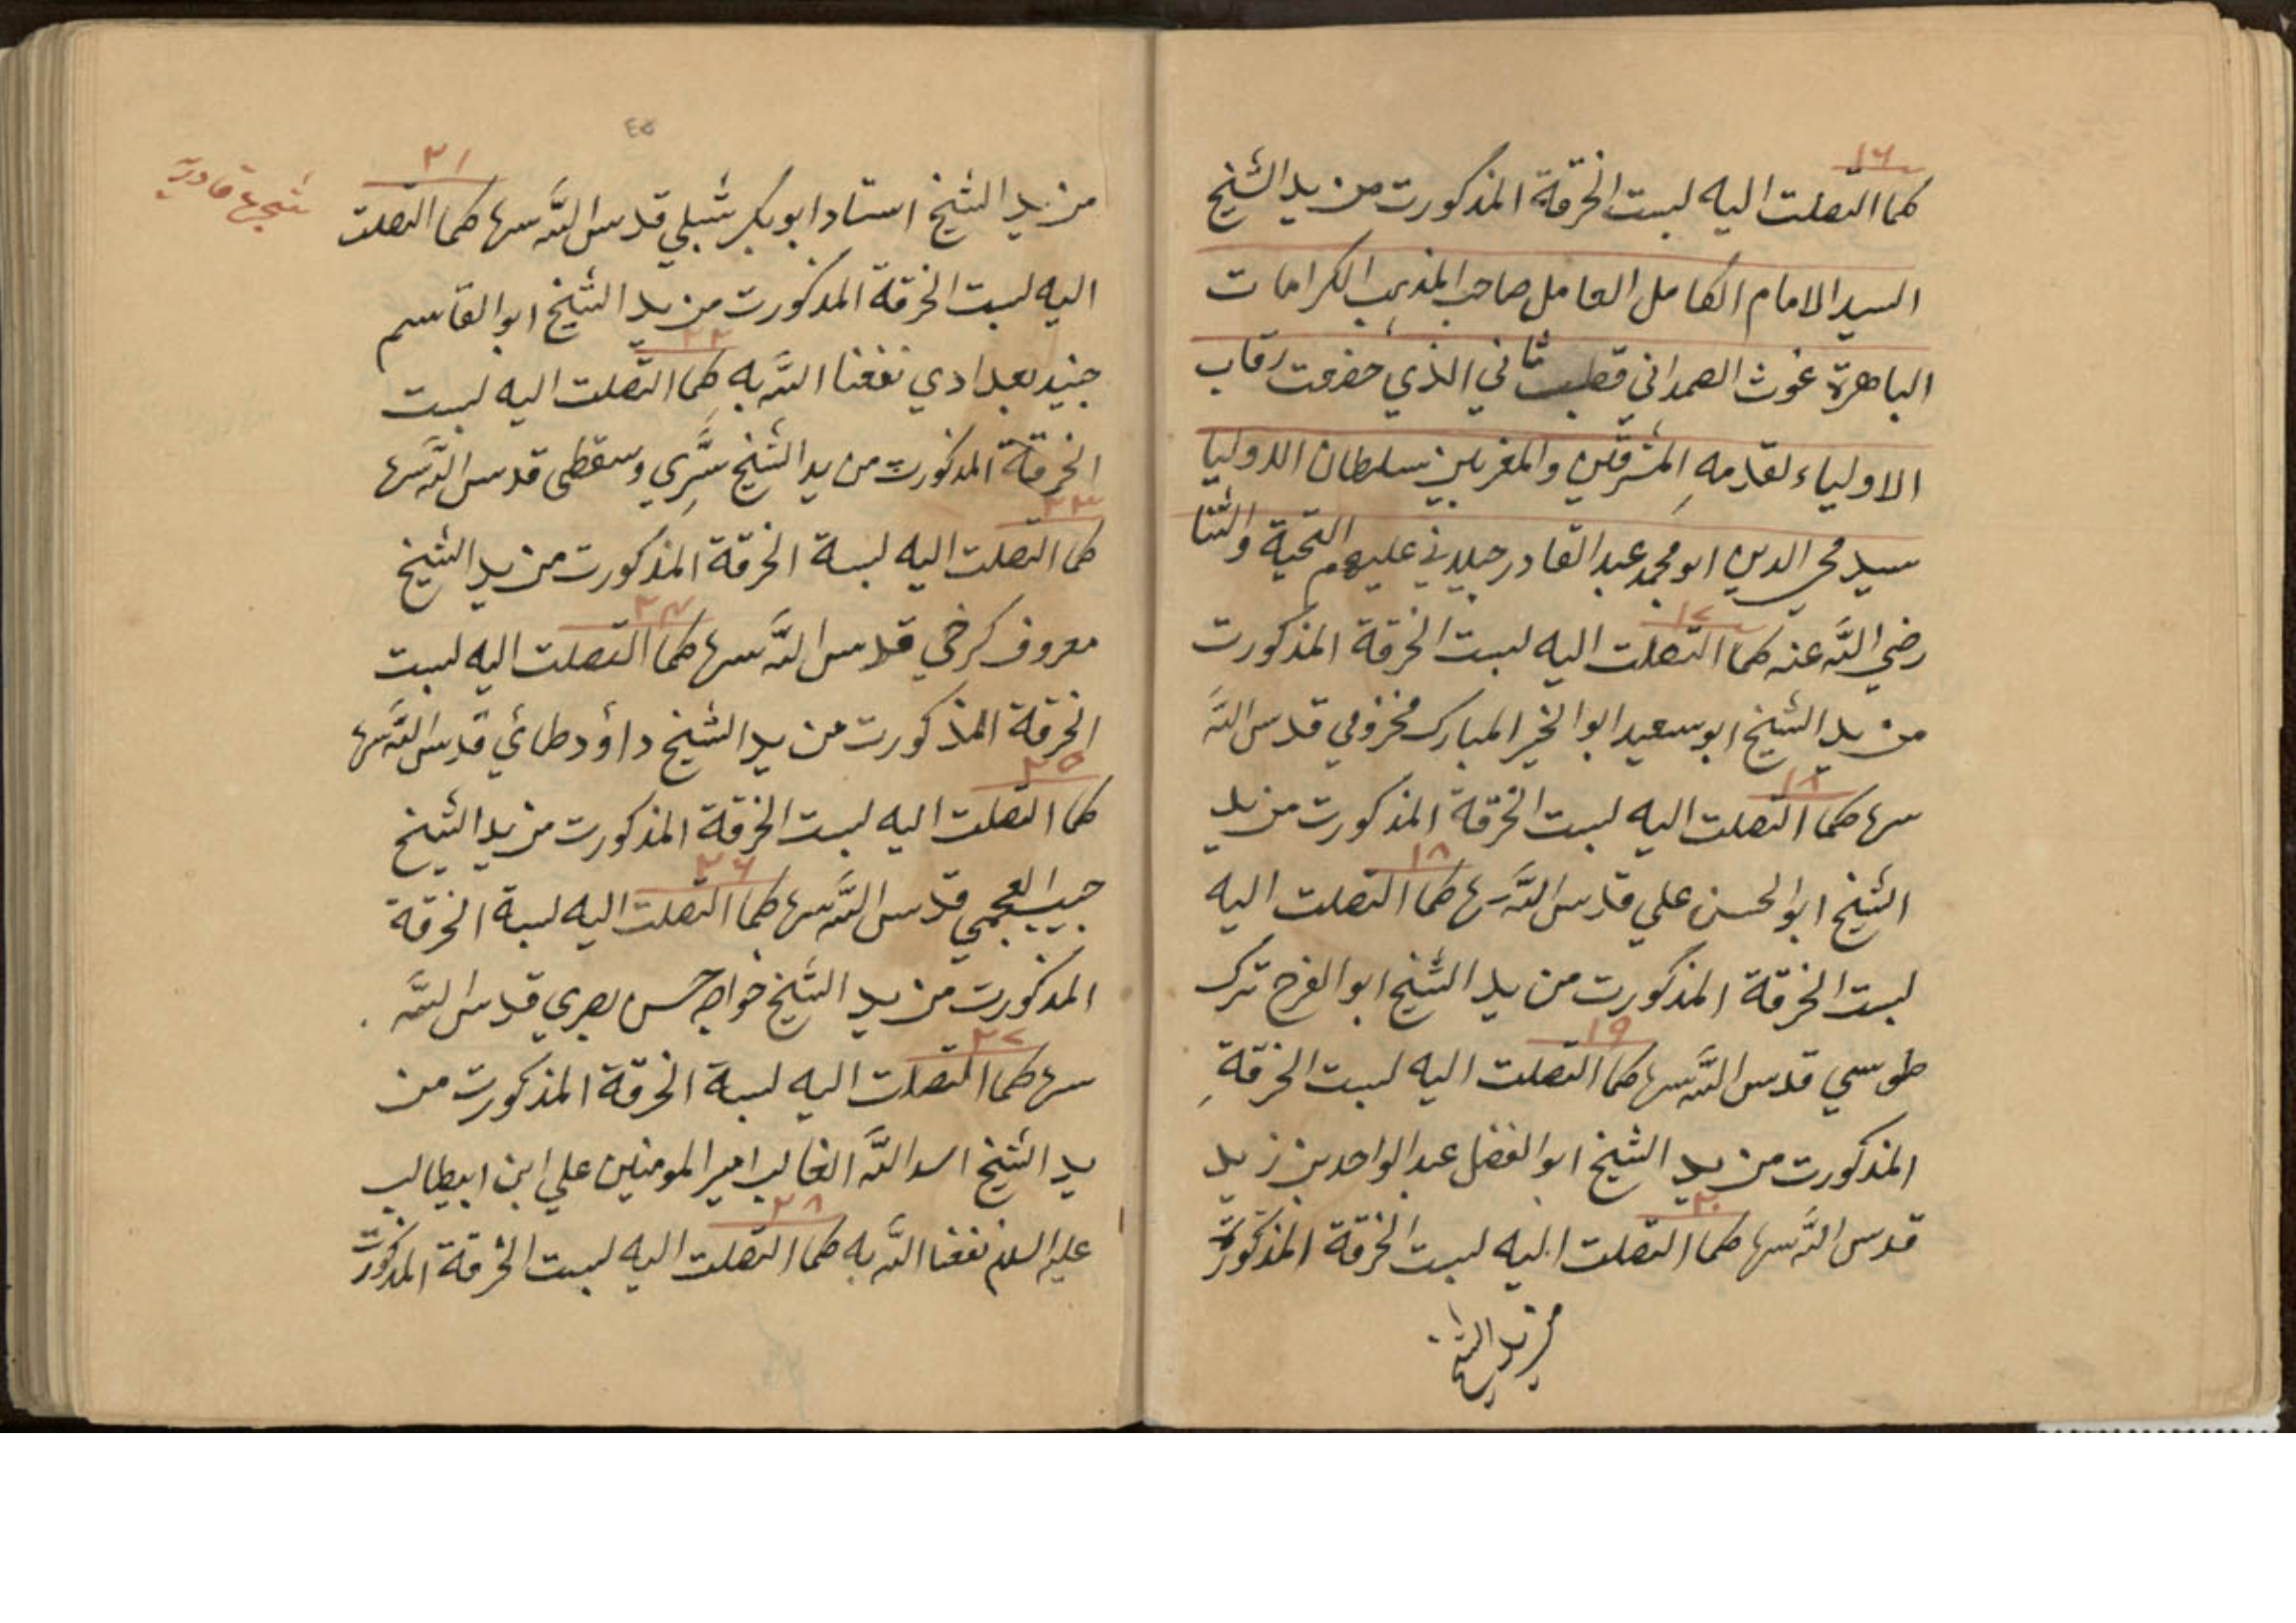 ١٦
كما اتصلت اليه لبست الخرقة المذكورت من يد الشيخ
السيد الامام الكامل العامل صاحب المذهب الكرامات
الباهرة غوث الصمداني قطب ثاني الذي خضعت رقاب
الاولياء لقدمهِ المشرقين والمغربين سلطان الاوليا
سيد محي الدين ابو محمد عبد القادر جيلاني عليهم التحية والثنا
١٧
رضي اللّه عنه كما اتصلت اليه لبست الخرقة المذكورت
من يد الشيخ ابو سعيد ابو الخير المبارك مخزومي قدس اللّه
سرها كما اتصلت اليه لبست الخرقة المذكورت من يد
١٨
الشيخ ابو الحسن علي قدس اللّه سرها كما اتصلت اليه
لبست الخرقة المذكورت من يد الشيخ ابو الفرح ترك
١٩
طوسي قدس اللّه سرها كما اتصلت اليه لبست الخرقةِ
المذكورت من يد الشيخ ابو الفضل عبد الواحد بن زيد
٢٠
قدس اللّه سرها كما اتصلت اليه لبست الخرقة المذكورت
من يد الشيخ
٤٥
شجرة قادرية
٢١
من يد الشيخ استاد ابو بكر شبلي قدس اللّه سرها كما اتصلت
اليه لبست الخرقة المذكورت من يد الشيخ ابو القاسم
٢٢
جنيد بغدادي نفعنا اللّه به كما اتصلت اليه لبست
الخرقة المذكورت من يد الشيخ سَرِّي وسقطى قدس اللّه سرها
٢٣
كما اتصلت اليه لبسة الخرقة المذكورت من يد الشيخ
٢٤
معروف كرخي قدس اللّه سرها كما اتصلت اليه لبست
الخرقة المذكورت من يد الشيخ داؤد طائي قدس اللّه سرها
٢٥
كما اتصلت اليه لبست الخرقة المذكورت من يد الشيخ
٢٦
حبيب العجمي قدس اللّه سرها كما اتصلت اليه لبسة الخرقة
المذكورت من يد الشيخ خواجه حسن بصري قدس اللّه
٢٧
سرها كما اتصلت اليه لبسة الخرقة المذكورت من
يد الشيخ اسد اللّه الغالب امير المومنين علي ابن ابيطالب
٢٨
عليه السلام نفعنا اللّه به كما اتصلت اليه لبست الخرقة المذكورت